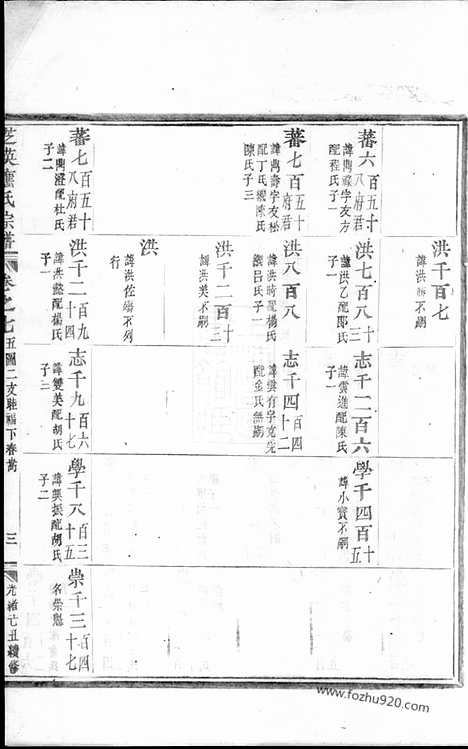 洪千百七
諱洪 不嗣
蕃六百五十八府君
諱 字友方
配程氏子一
洪七百八十三
諱洪乙配鄭氏
子一
志千二百六
諱雲進配陳氏
子一
學千四百十五
諱小寶不嗣
蕃七百五十八府君
諱 壽字友松
配丁氏繼陳氏
陳氏子三
洪八百八
諱洪時配楊氏
繼呂氏子一
志千四百四十二
諱雲有字克先
配金氏無嗣
洪千二百十三
諱洪美不嗣
洪
諱洪佐 不列
行
蕃七百五十八府君
諱 澄配杜氏
子二
洪千二百九十四
諱洪懿配楊氏
子一
志千九百六十七
諱雙美配胡氏
子二
學千八百三十五
諱與振配胡氏
子二
崇千三百四十七
名崇
芝英應氏宗譜
卷之七
五圖二支駐福下春常
三
光緒己丑續修
www.fozhu920.com